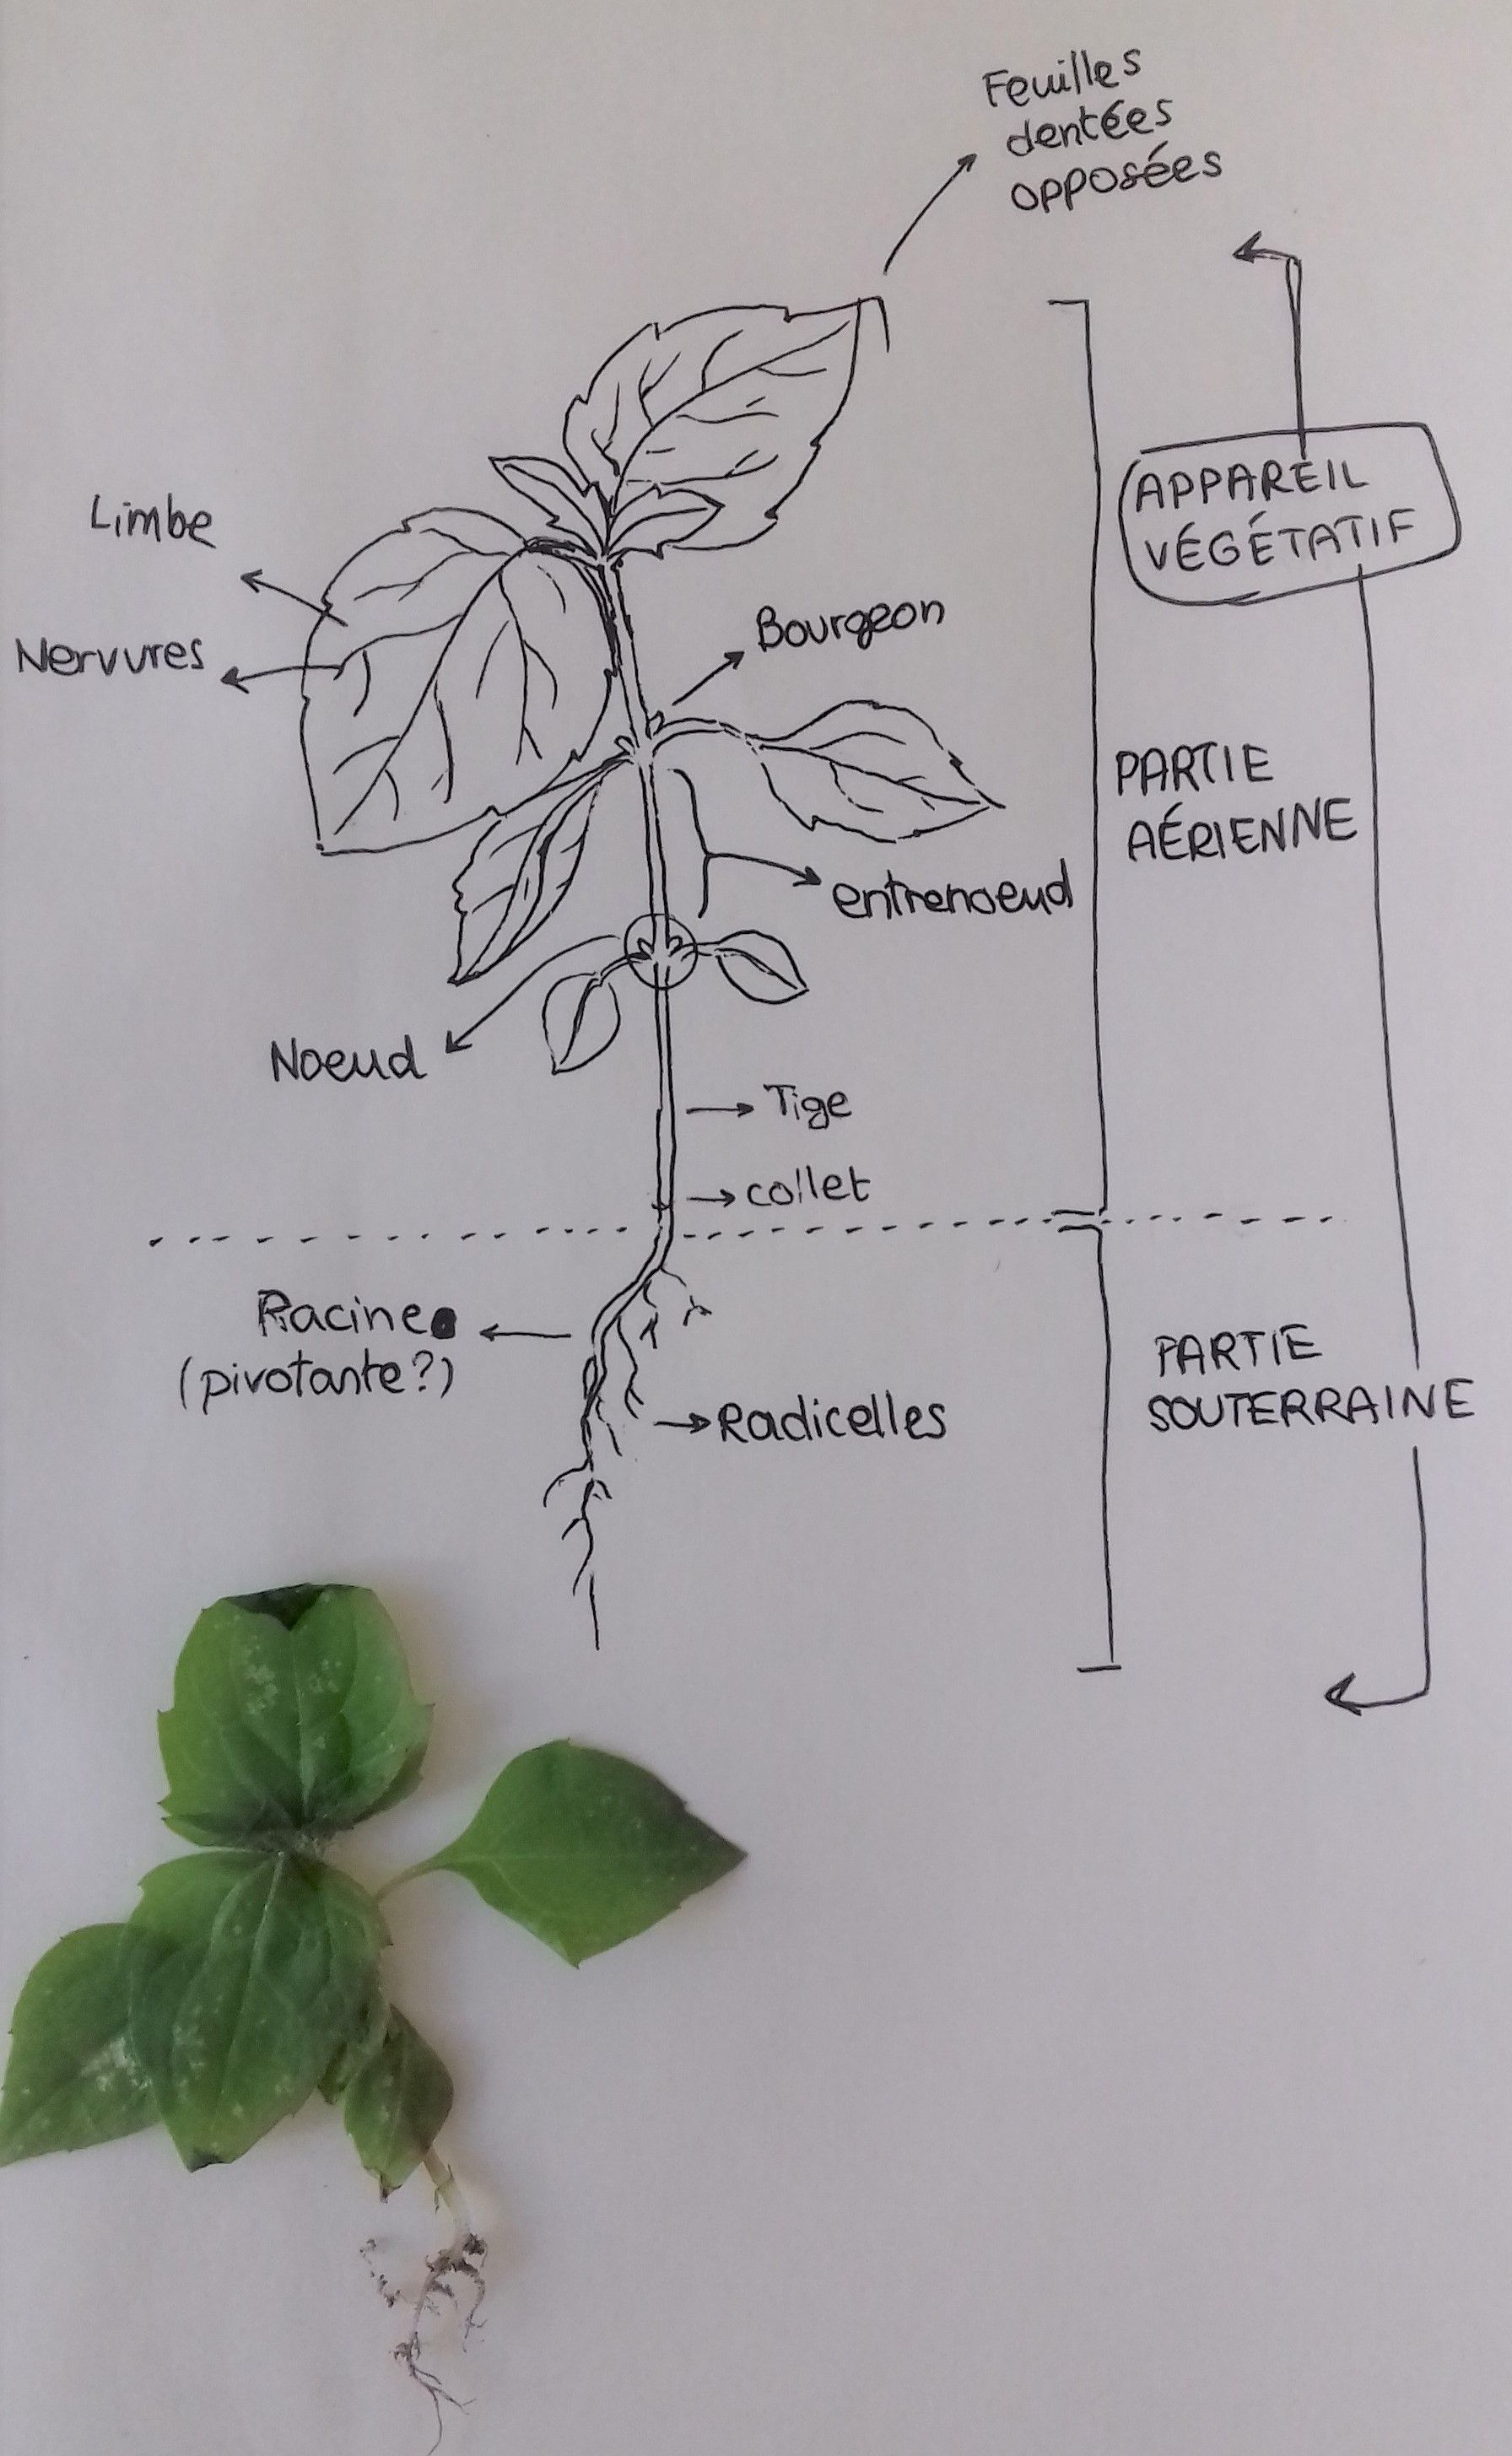 Feuilles
dentées
opposées
Limbe
Nervures
Bourgeon
APPAREIL
VÉGÉTATIF
PARTIE
AÉRIENNE
entrenoeud
Noeud
Tige
collet
Racine
(pivotante?)
Radicelles
PARTIE
SOUTERRAINE